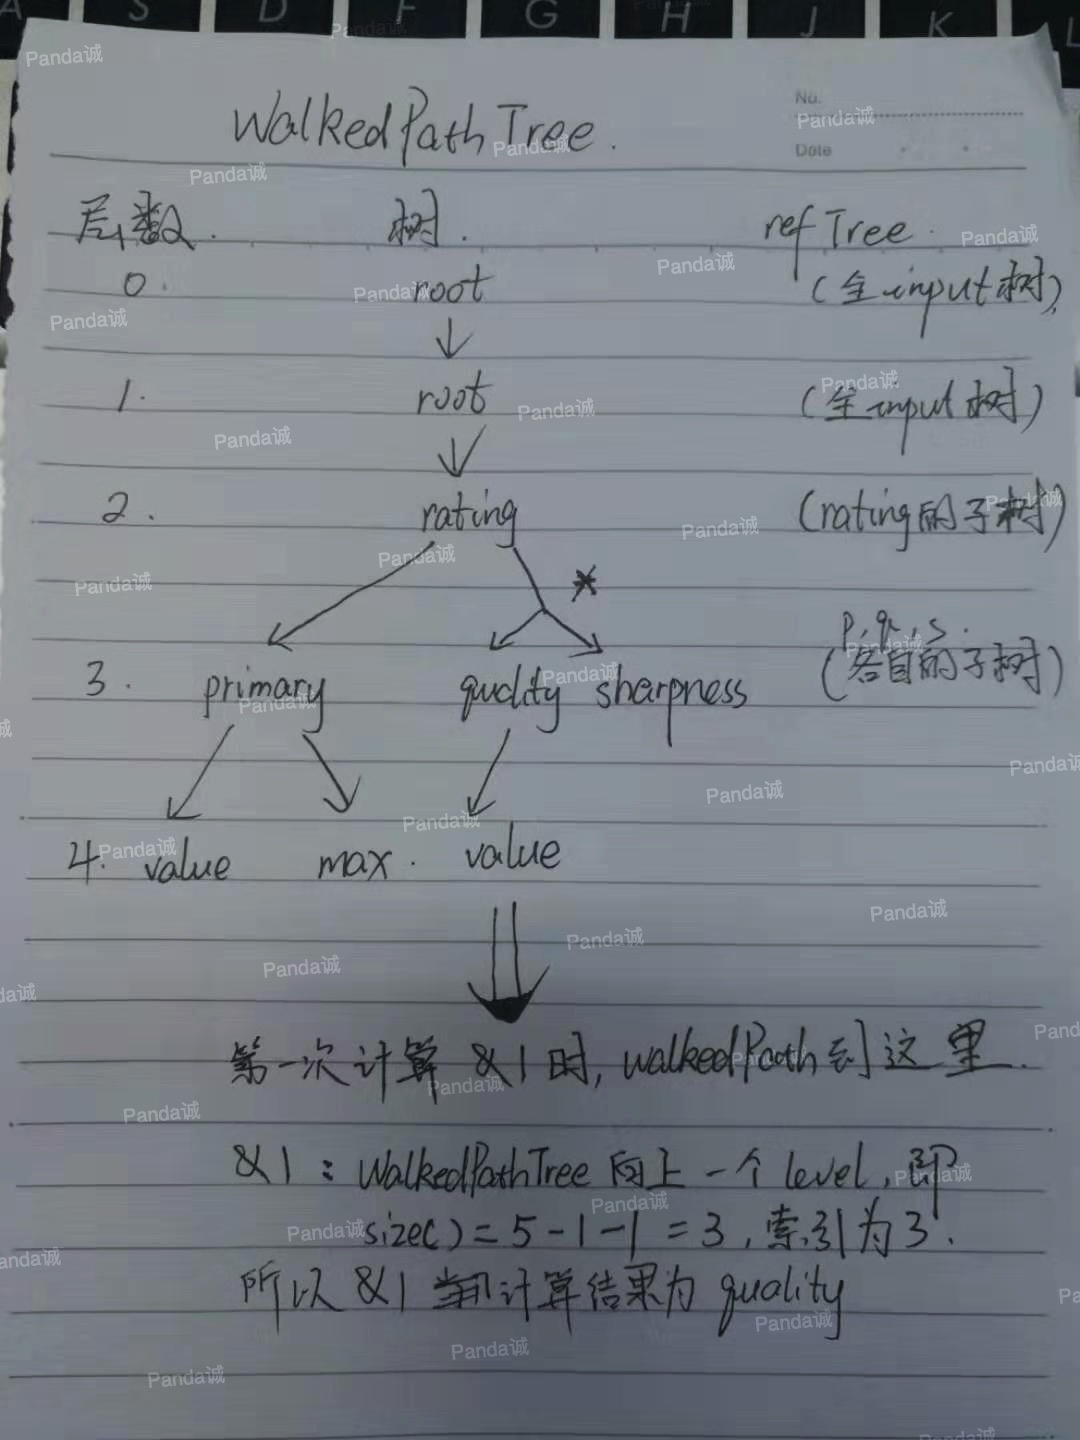 A S D F G H J K L
No.
Date
WalkedPathTree.
层数. 树. refTree.
0. root (全input树)
1. root (全input树)
2. rating (rating的子树)
*
p, q, s.
3. primary quality sharpness (各自的子树)
4. value max. value
第一次计算 &1时, walkedPath到这里.
&1: WalkedPathTree 向上一个level, 即
size() = 5-1-1 = 3, 索引为3.
所以 &1 计算结果为 quality
Panda诚